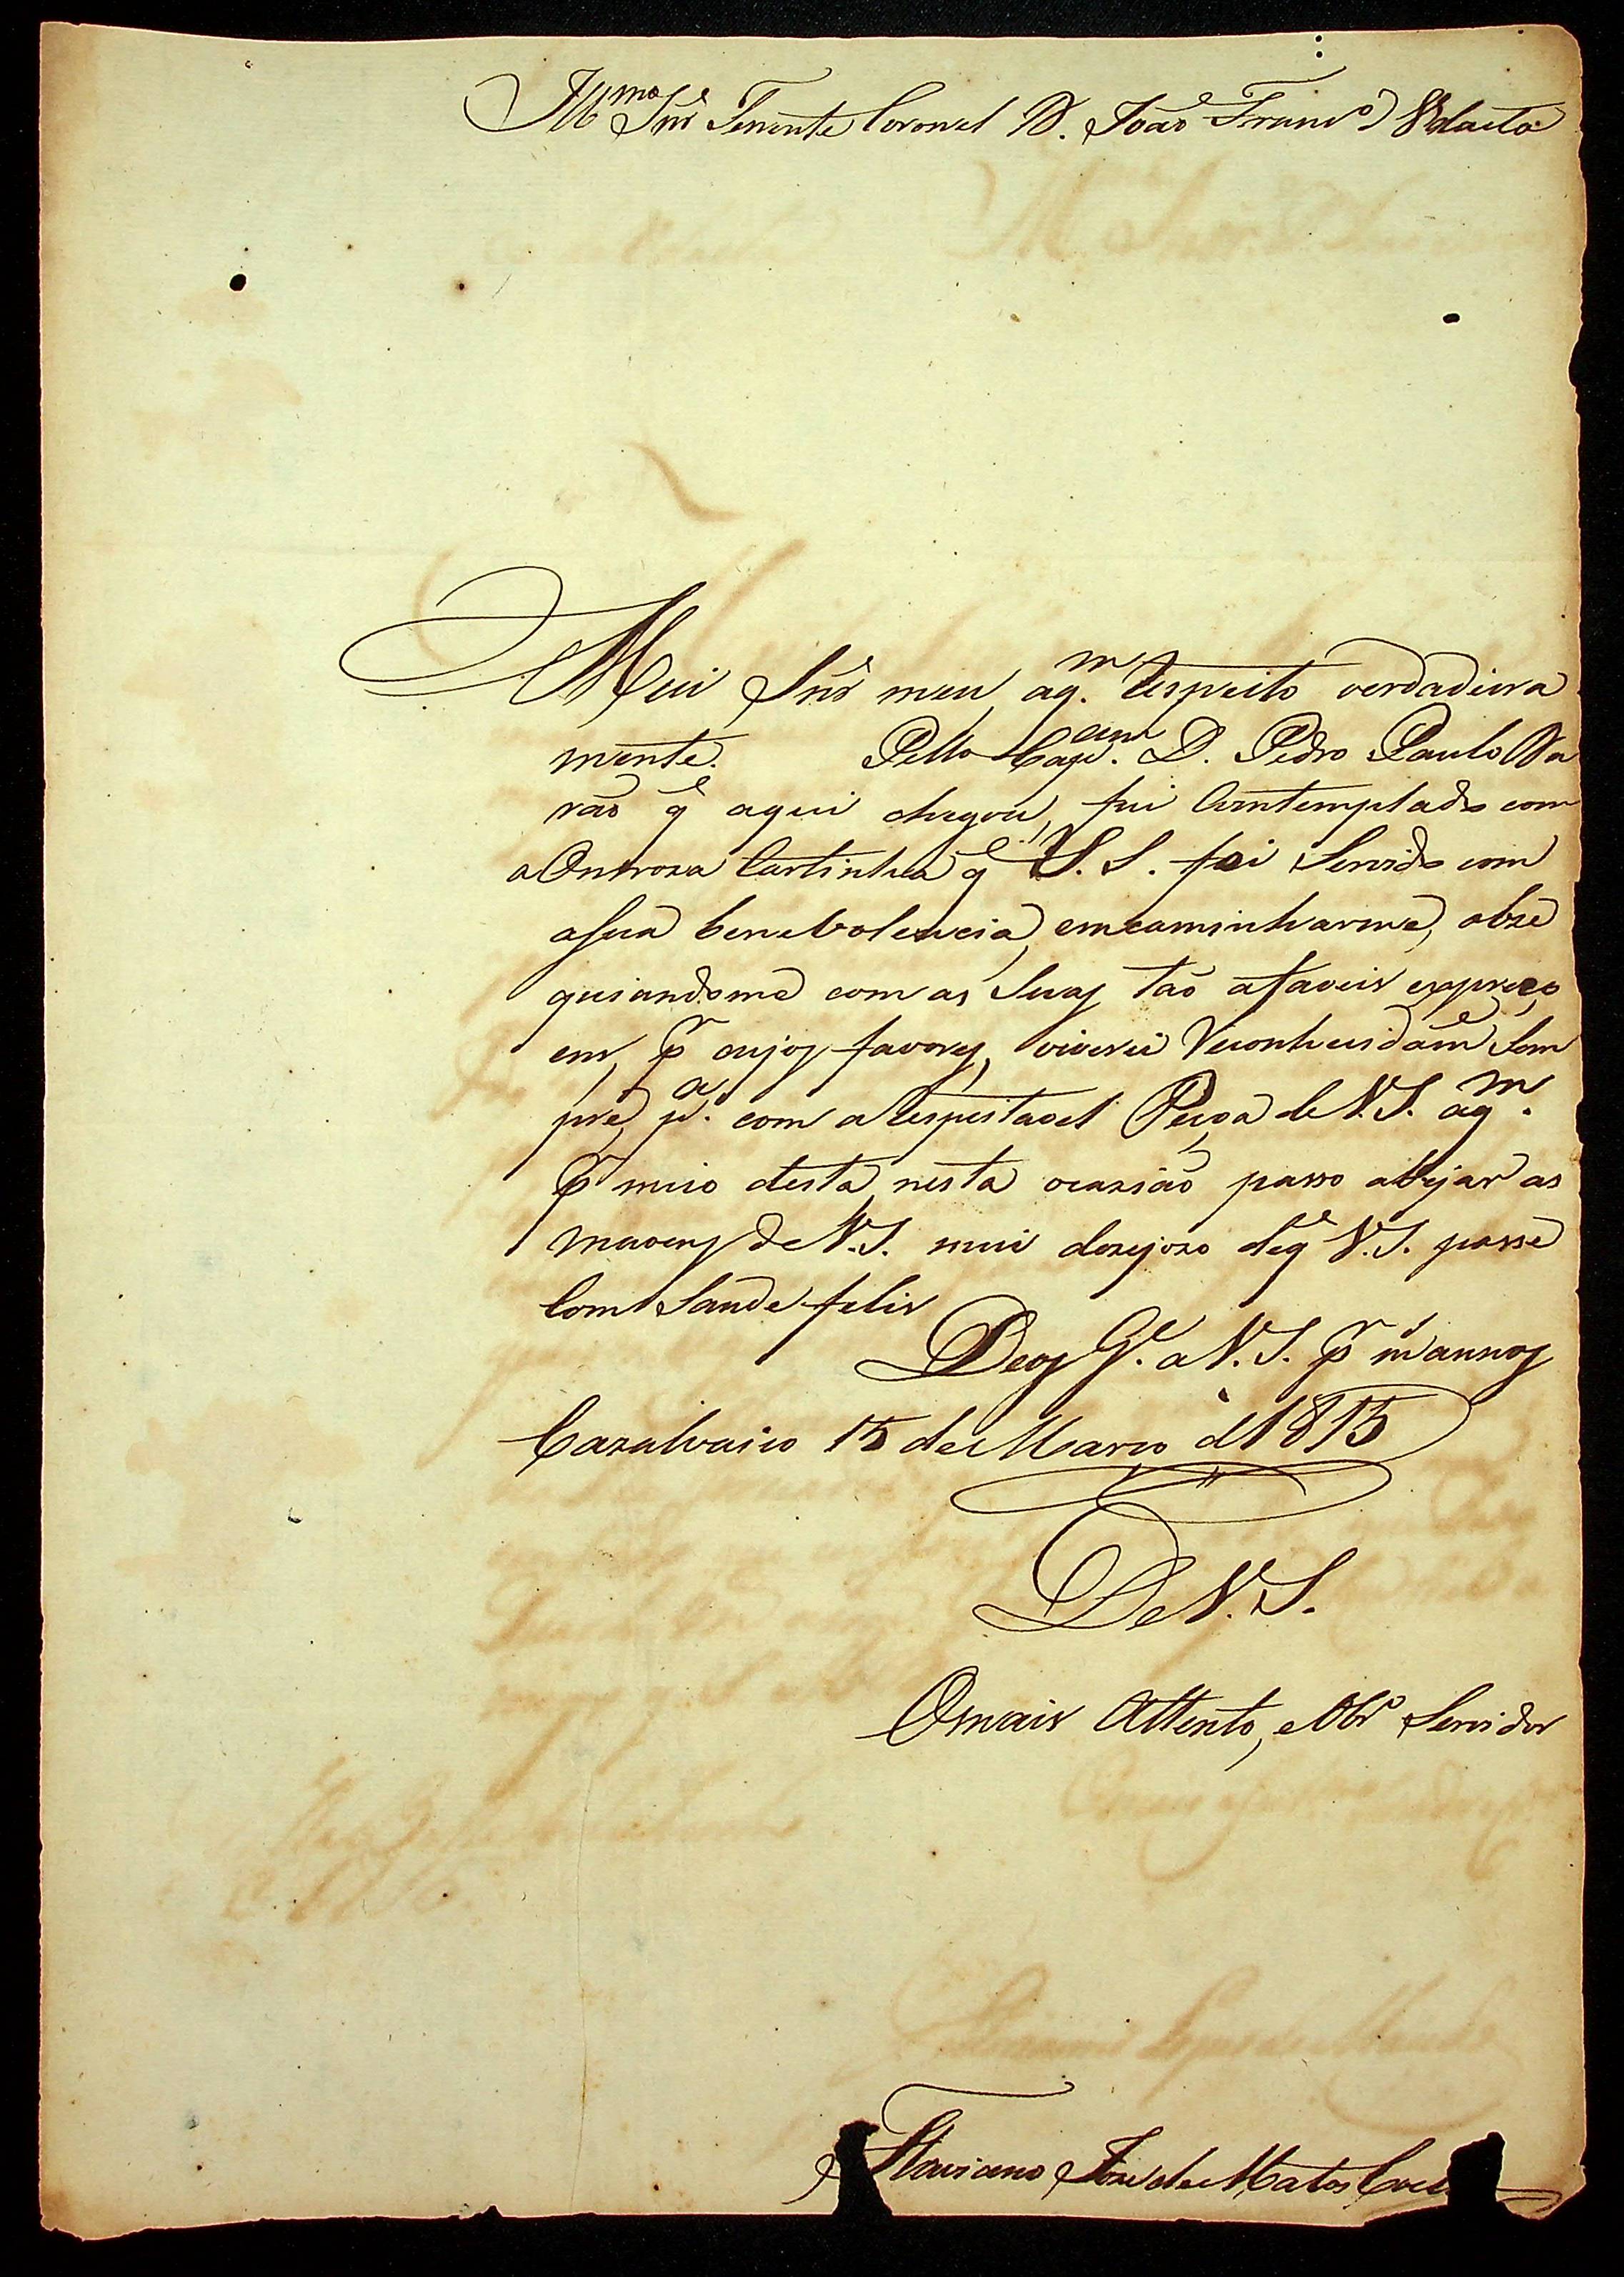 Illmo Snr Tenente Coronel D. João Franco Velasto
Mui Snr meu aqm. Respeito verdadiera
mente. Pello Capam. D. Pedro Paulo Va
rão q aqui chegou, fui Comtemplado com
a Onrroza Cartinha q V.S. foi Servido com
asua benebolencia, emcaminharme, obze
quiandome com as Suas tão afaveis expreço
ens, pr cujos favores, viverei Reconhecidam Sem
pre, pa. com a Respeitavel Peçoa de V.S. aqm.
pr meio desta, nesta ocazião passo abejar as
maoens de V.S. mui dezejozo deq V.S. passe
Com Saude felis
Deos Ge. a V.S. pr ms annos
Cazalvasco 15 de Marco d 1815
De V.S.
Omais Attento, e Obro Servidor
Flaviano Joze de Matos